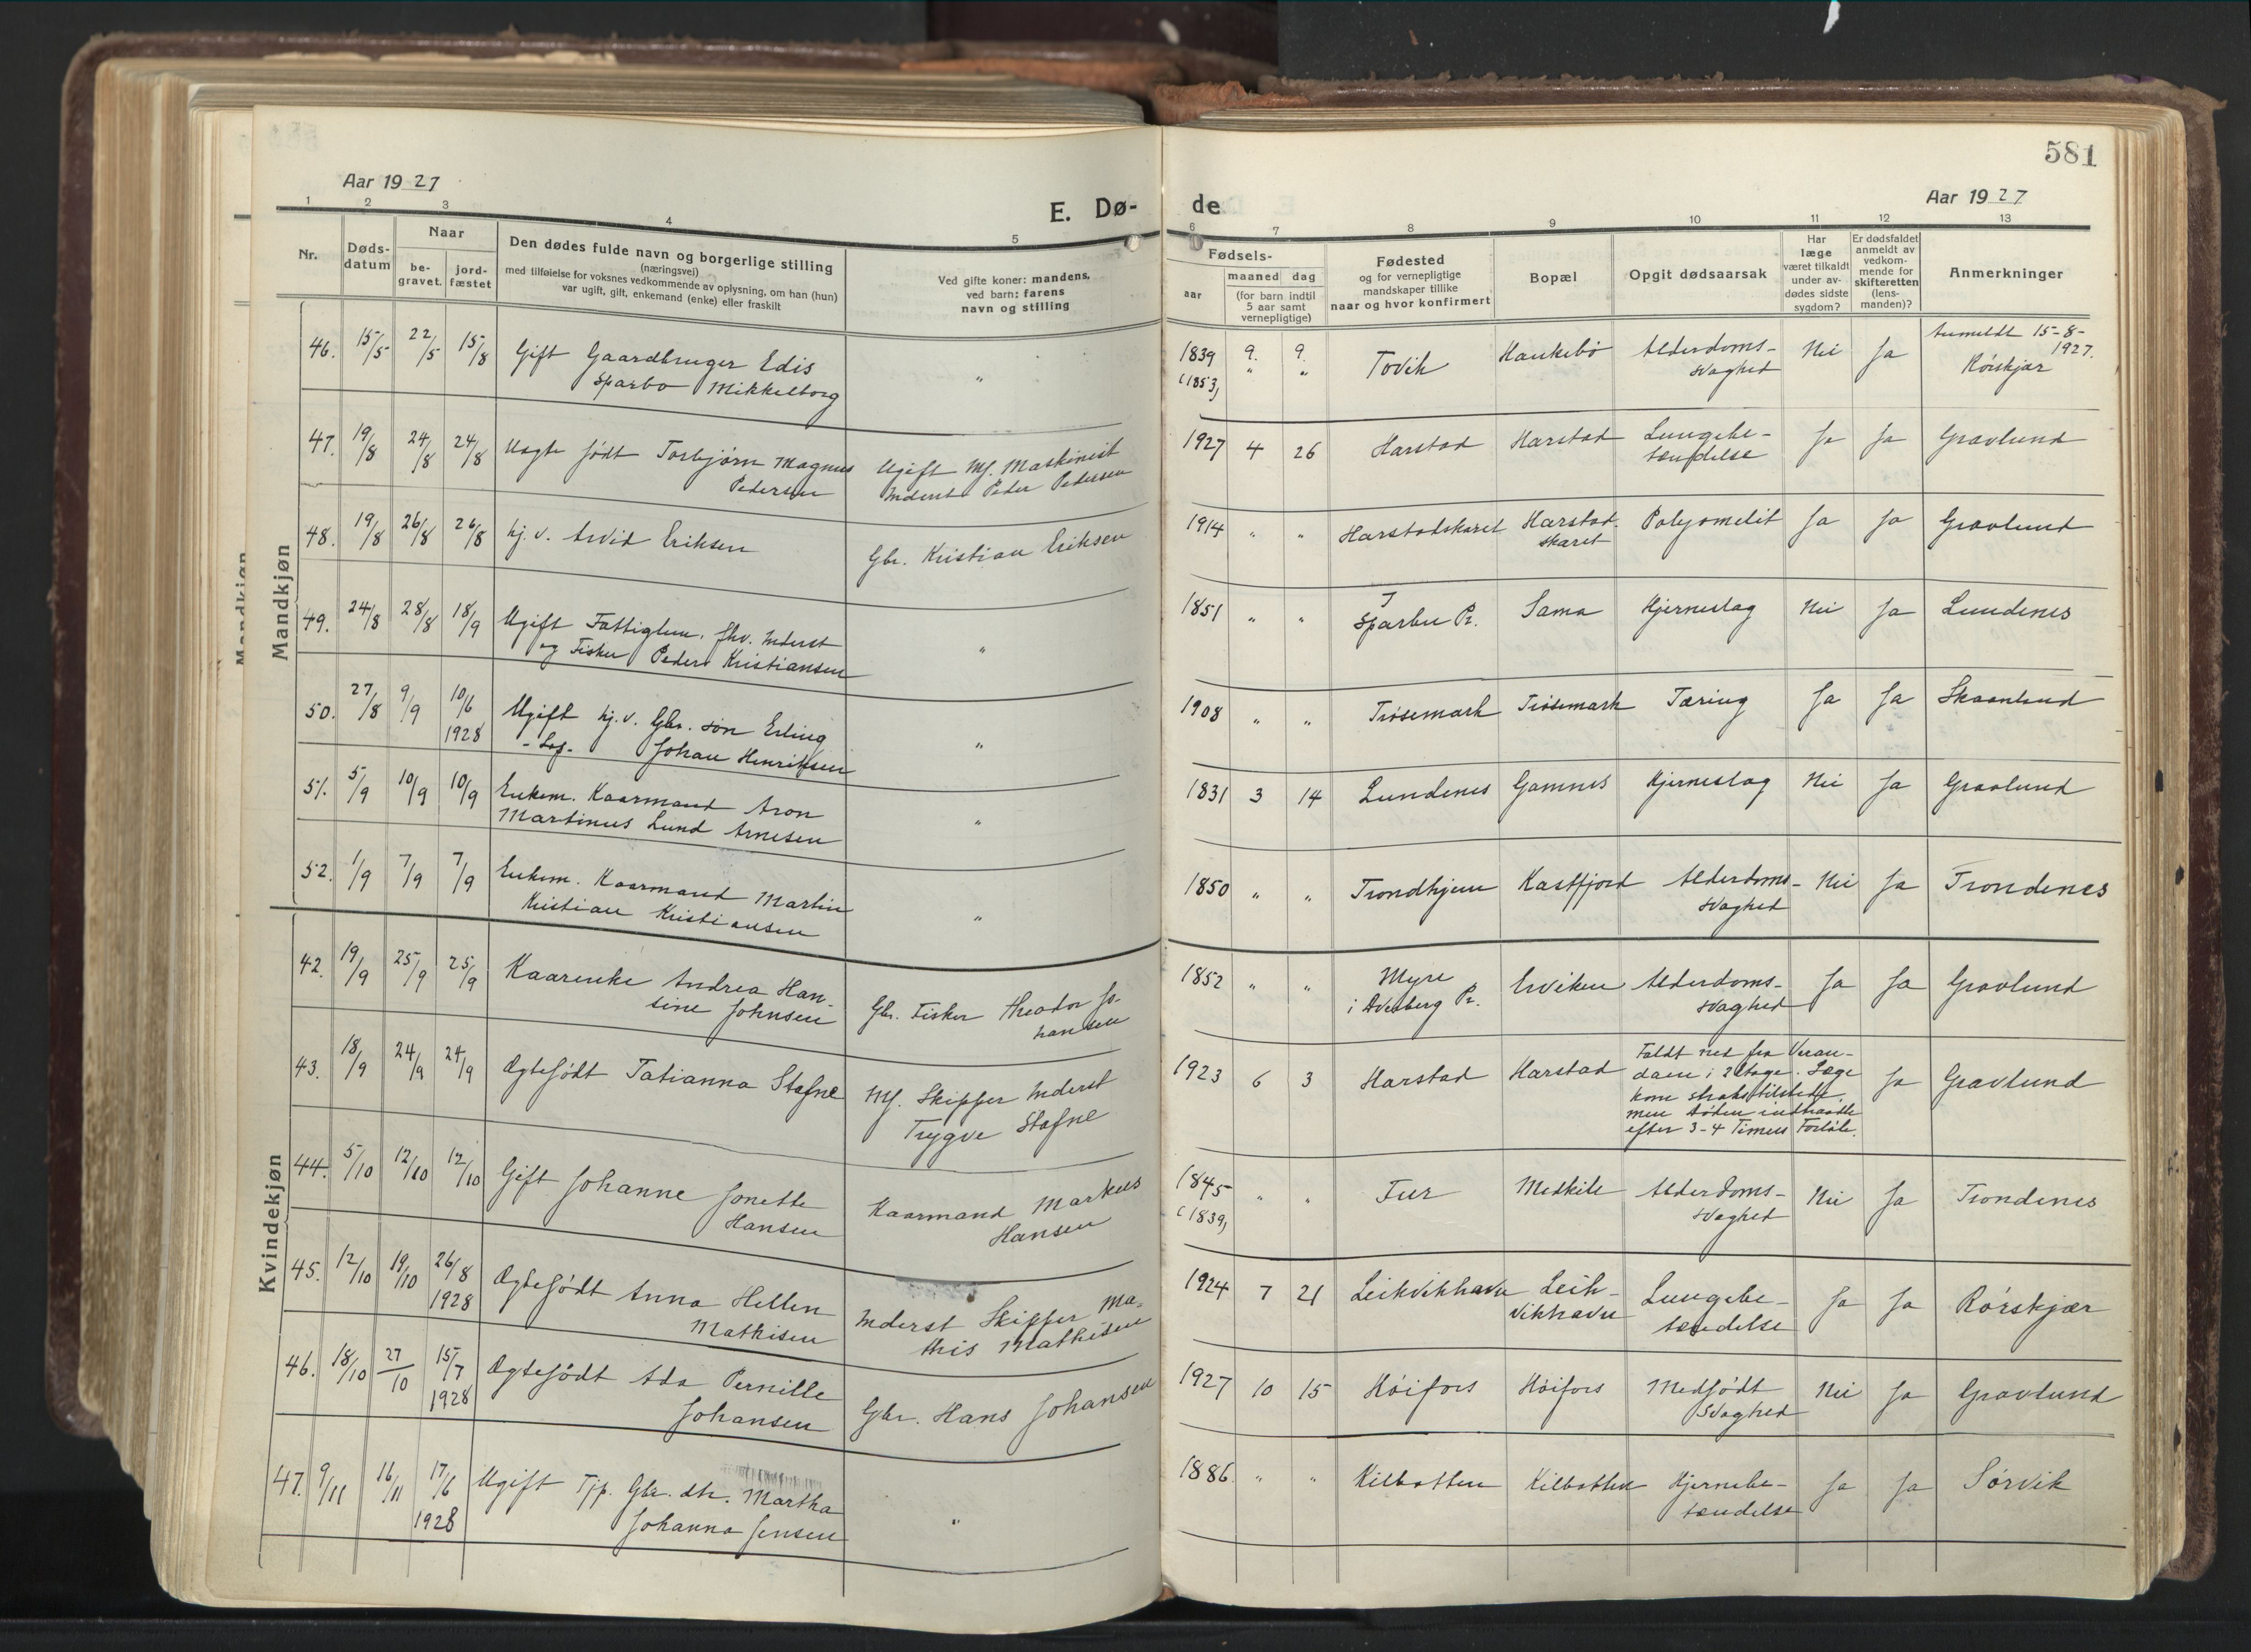 581
Aar 1927
Aar 1927
E. Dø-
de
1 2 3 4 5 6 7 8 9 10 11 12 13
Nr.
Døds-
datum
Naar
be-
gravet.
jord-
fæstet
Den dødes fulde navn og borgerlige stilling
(næringsvei)
med tilføielse for voksnes vedkommende av oplysning, om han (hun)
var ugift, gift, enkemand (enke) eller fraskilt
Ved gifte koner: mandens,
ved barn: farens
navn og stilling
Fødsels-
aar
maaned dag
(for barn indtil
5 aar samt
vernepligtige)
Fødested
og for vernepligtige
mandskaper tillike
naar og hvor konfirmert
Bopæl
Opgit dødsaarsak
Har
læge
været tilkaldt
under av-
dødes sidste
sygdom?
Er dødsfaldet
anmeldt av
vedkom-
mende for
skifteretten
(lens-
manden)?
Anmerkninger
Mandkjøn
Mandkjøn
46. 15/5 22/5 15/8 Gift Gaardbruger Edis
Sparbo Mikkelborg
"
1839 9. 9. Tovik Haukebø Alderdoms-
svaghed Nei Ja Anmeldt 15-8-
1927.
(1853) " " Rørskjær
47. 19/8 24/8 24/8 Uægte født Torbjørn Magnus
Pedersen
Ugift Mf. Maskinist
Inderst Peder Pedersen
1927 4 26 Harstad Harstad Lungebe-
tændelse Ja Ja Gravlund
48. 19/8 26/8 26/8 hj. v. Arvid Eriksen
Gbr. Kristian Eriksen
1914 " " Harstadskaret Harstad-
skaret Polyomelit Ja Ja Gravlund
49. 24/8 28/8 18/9 Ugift Fattiglem. fhv. Inderst
og Fisker Peder Kristiansen
"
1851 " " Sparbu Pr. Sama Hjerneslag Nei Ja Lundenes
50. 27/8 9/9 10/6
1928 Ugift hj. v. Gbr. søn Erling
Johan Henriksen
"
1908 " " Trøsemark Trøsemark Tæring Ja Ja Skaanland
51. 5/9 10/9 10/9 Enkem. Kaarmand Aron
Martinus Lund Arnesen
"
1831 3 14 Lundenes Gamnes Hjerneslag Nei Ja Gravlund
52. 1/9 7/9 7/9 Enkem. Kaarmand Martin
Kristian Kristiansen
"
1850 " " Trondhjem Kastfjord Alderdoms-
svaghed Nei Ja Trondenes
Kvindekjøn
42. 19/9 25/9 25/9 Kaarenke Andrea Han-
sine Johnsen
Gbr. Fisker Theodor Jo-
hansen
1852 " " Myre
i Dverberg Pr. Erviken Alderdoms-
svaghed Ja Ja Gravlund
43. 18/9 24/9 24/9 Ægtefødt Tatianna Stafne
Mf. Skipper Inderst
Trygve Stafne
1923 6 3 Harstad Harstad Faldt ned fra Veran-
daen i 2 etage. Læge
kom straks tilstede,
men døden indtraadte
efter 3-4 Timers Forløb.
Ja Gravlund
44. 5/10 12/10 12/10 Gift Johanne Jonette
Hansen
Kaarmand Markus
Hansen
1845 " "
(1839) Medkile Alderdoms-
svaghed Nei Ja Trondenes
45. 12/10 19/10 26/8
1928 Ægtefødt Anna Hellen
Mathisen
Inderst Skipper Ma-
this Mathisen
1924 7 21 Leikvikhavn Leik-
vikhavn Lungebe-
tændelse Ja Ja Rørskjær
46. 18/10 27/10 15/7
1928 Ægtefødt Ada Pernille
Johansen
Gbr. Hans Johansen
1927 10 15 Høifors Høifors Medfødt
Svaghed Nei Ja Gravlund
47. 9/11 16/11 17/6
1928 Ugift Tjp. Gbr. dtr. Martha
Johanna Jensen
"
1886. " " Kilbotten Kilbotten Hjernebe-
tændelse Ja Ja Sørvik